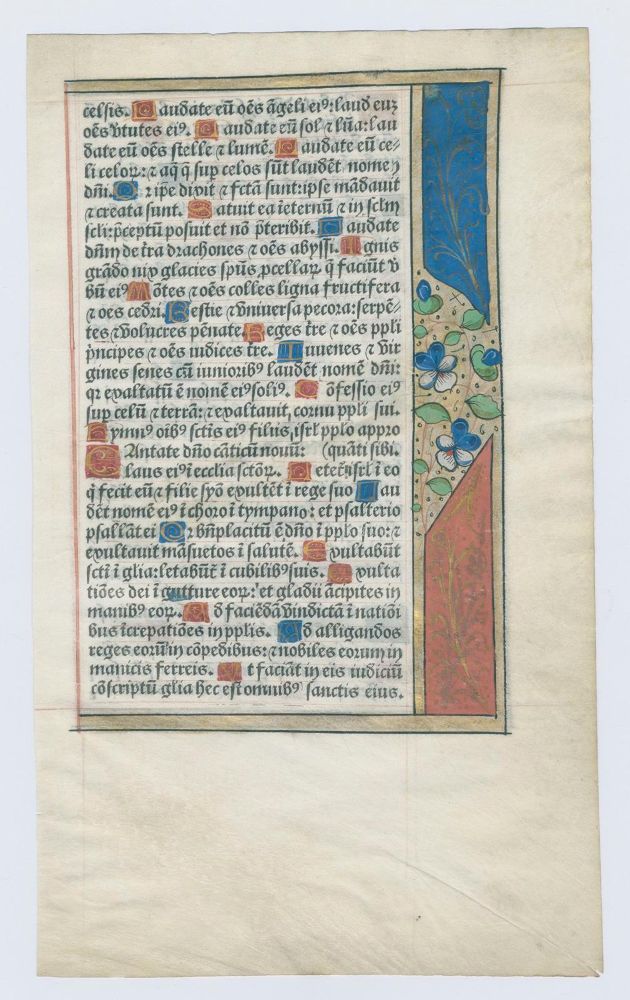 celsis. Laudate eū oēs āgeli eiꝰ: laud euꝫ
oēs v̄tutes eiꝰ. Laudate eū sol ⁊ lūa: lau
date eū oēs stelle ⁊ lumē. Laudate eū ce-
li celoꝝ: ⁊ aq̄ q̄ sup celos sūt laudēt nomē
dn̄i. Qr ip̄e dixit ⁊ fc̄ta sunt: ipse mādauit
⁊ creata sunt. Statuit ea īeternū ⁊ in sc̄lm
scl̄i: p̄ceptū posuit et nō p̄teribit. Laudate
dn̄m de t̄ra drachones ⁊ oēs abyssi. Ignis
grādo nix glacies sp̄us ꝓcellaꝝ q̄ faciūt v̄
bū eiꝰ Mōtes ⁊ oēs colles ligna fructifera
⁊ oēs cedri. Bestie ⁊ vniuersa pecora: serpē-
tes ⁊ volucres pēnate. Reges t̄re ⁊ oēs pp̄li
p̄ncipes ⁊ oēs iudices t̄re. Iuuenes ⁊ vir
gines senes cū iunioribꝰ laudēt nomē dn̄i:
qr exaltatū ē nomē eiꝰ soliꝰ. Cōfessio eiꝰ
sup celū ⁊ terrā: ⁊ exaltauit cornu pp̄li sui.
Hymnꝰ oībꝰ sc̄tis eiꝰ filiis isrl̄ pp̄lo appro
CAntate dn̄o cāticū nouū: (quāti sibi.
laus eiꝰ ī ecclīa sc̄toꝝ. Letet̄ isrl̄ ī eo
q̄ fecit eū ⁊ filie syō exultēt ī rege suo Lau
dēt nomē eiꝰ ī choro ī tympano: et psalterio
psallāt ei Qr bn̄placitū ē dn̄o ī pp̄lo suo: ⁊
exultauit māsuetos ī salutē. Exultabūt
sc̄ti ī glīa: letabūt̄ ī cubilibꝰ suis. Exulta
tiōes dei ī gutture eoꝝ: et gladii ācipites in
manibꝰ eoꝝ. Ad faciēdā vindictā ī natiōi
bus īcrepatiōes in pp̄lis. Ad alligandos
reges eorū in cōpedibus: ⁊ nobiles eorum in
manicis ferreis. Ut faciāt in eis iudiciū
cōscriptū glīa hec est omnibꝰ sanctis eius.